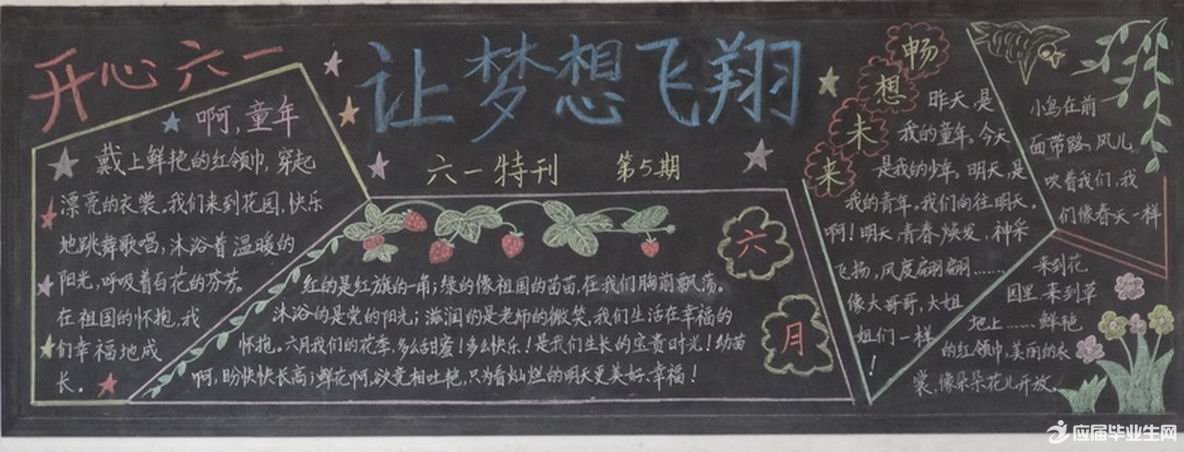 开心六一
让梦想飞翔
六一特刊 第5期
啊,童年
戴上鲜艳的红领巾,穿起
漂亮的衣裳。我们来到花园,快乐
地跳舞歌唱,沐浴着温暖的
阳光,呼吸着百花的芬芳。
在祖国的怀抱,我
们幸福地成
长。
六月
红的是红旗的一角;绿的像祖国的苗苗,在我们胸前飘荡。
沐浴的是党的阳光;滋润的是老师的微笑,我们生活在幸福的
怀抱。六月我们的花季,多么甜蜜!多么快乐!是我们生长的宝贵时光!幼苗
啊,盼快快长高;鲜花啊,欲竞相吐艳,只为着灿烂的明天更美好、幸福!
畅想未来
昨天,是
我的童年。今天
是我的少年。明天,是
我的青年。我们向往明天。
啊!明天,青春焕发,神采
飞扬,风度翩翩……
像大哥哥,大姐
姐们一样
!
小鸟在前
面带路,风儿
吹着我们,我
们像春天一样
来到花
园里,来到草
地上……鲜艳
的红领巾,美丽的衣
裳,像朵朵花儿开放。
应届毕业生网